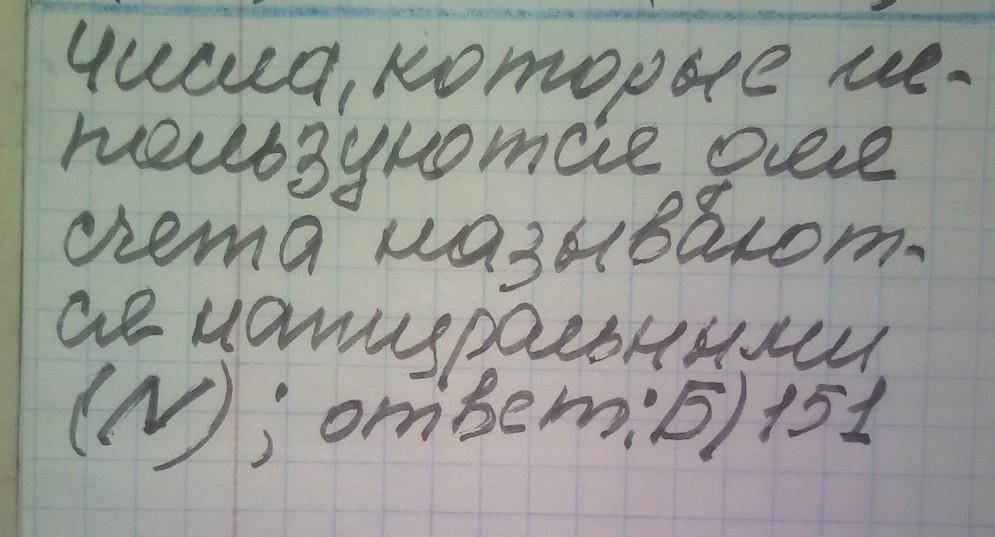 Числа, которые ис-
пользуются для
счета называют-
ся натуральными
(N); ответ: Б) 151